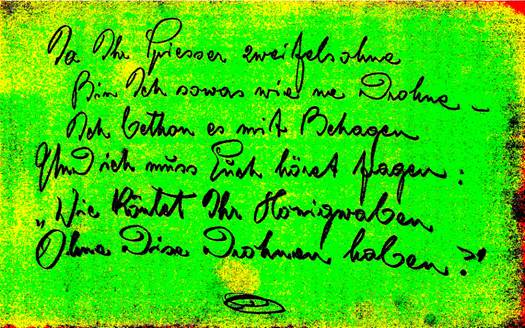 Ja Ihr Spiesser zweifelsohne
Bin Ich sowas wie ne Drohne –
Ich bethon es mit Behagen
Und ich muss Euch höret fragen:
„Wie köntet Ihr Honigwaben
Ohne Dise Drohnen haben?"